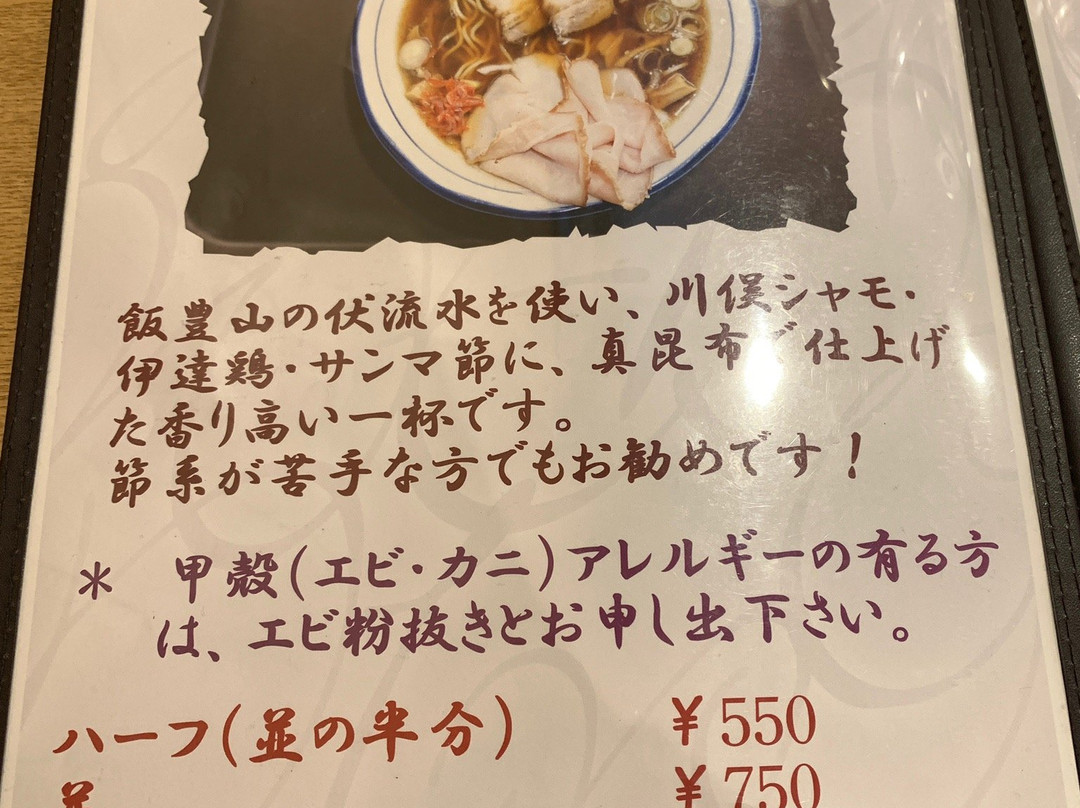 飯豊山の伏流水を使い、川俣シャモ・
伊達鶏・サンマ節に、真昆布で仕上げ
た香り高い一杯です。
節系が苦手な方でもお勧めです！
＊ 甲殻(エビ・カニ)アレルギーの有る方
は、エビ粉抜きとお申し出下さい。
ハーフ(並の半分) ￥550
並 ￥750